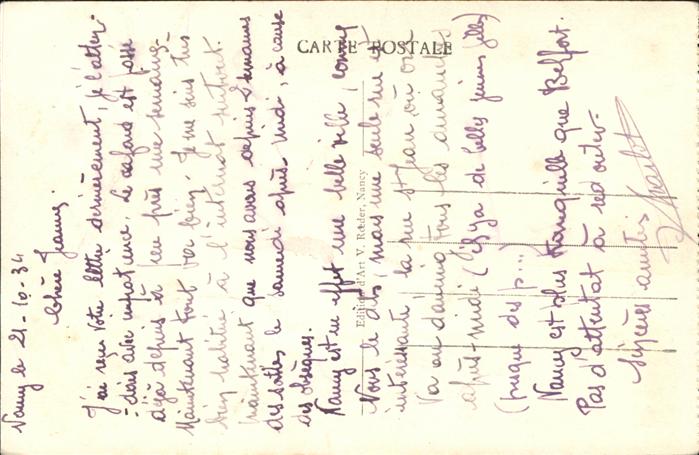 CARTE POSTALE
Editions d'Art V. Rœder, Nancy
Nancy le 21-10-34
Chère Jeanne
J'ai reçu votre lettre dernièrement, je l'atten-
-dais avec impatience. Le cafard est passé
déjà depuis à peu près une semaine.
Maintenant tout va bien. Je me suis très
bien habitué à l'internat surtout
maintenant que nous avons depuis 2 semaines
des sorties le samedi après-midi, à cause
des obsèques.
Nancy est en effet une belle ville, comme
vous le dites, mais une seule rue est
intéressante : la rue St Jean où on
va au dancing tous les dimanches
après-midi (il y a de belles jeunes filles)
(presque des p...)
Nancy est plus tranquille que Belfort.
Pas d'attentat à redouter.
Sincères amitiés